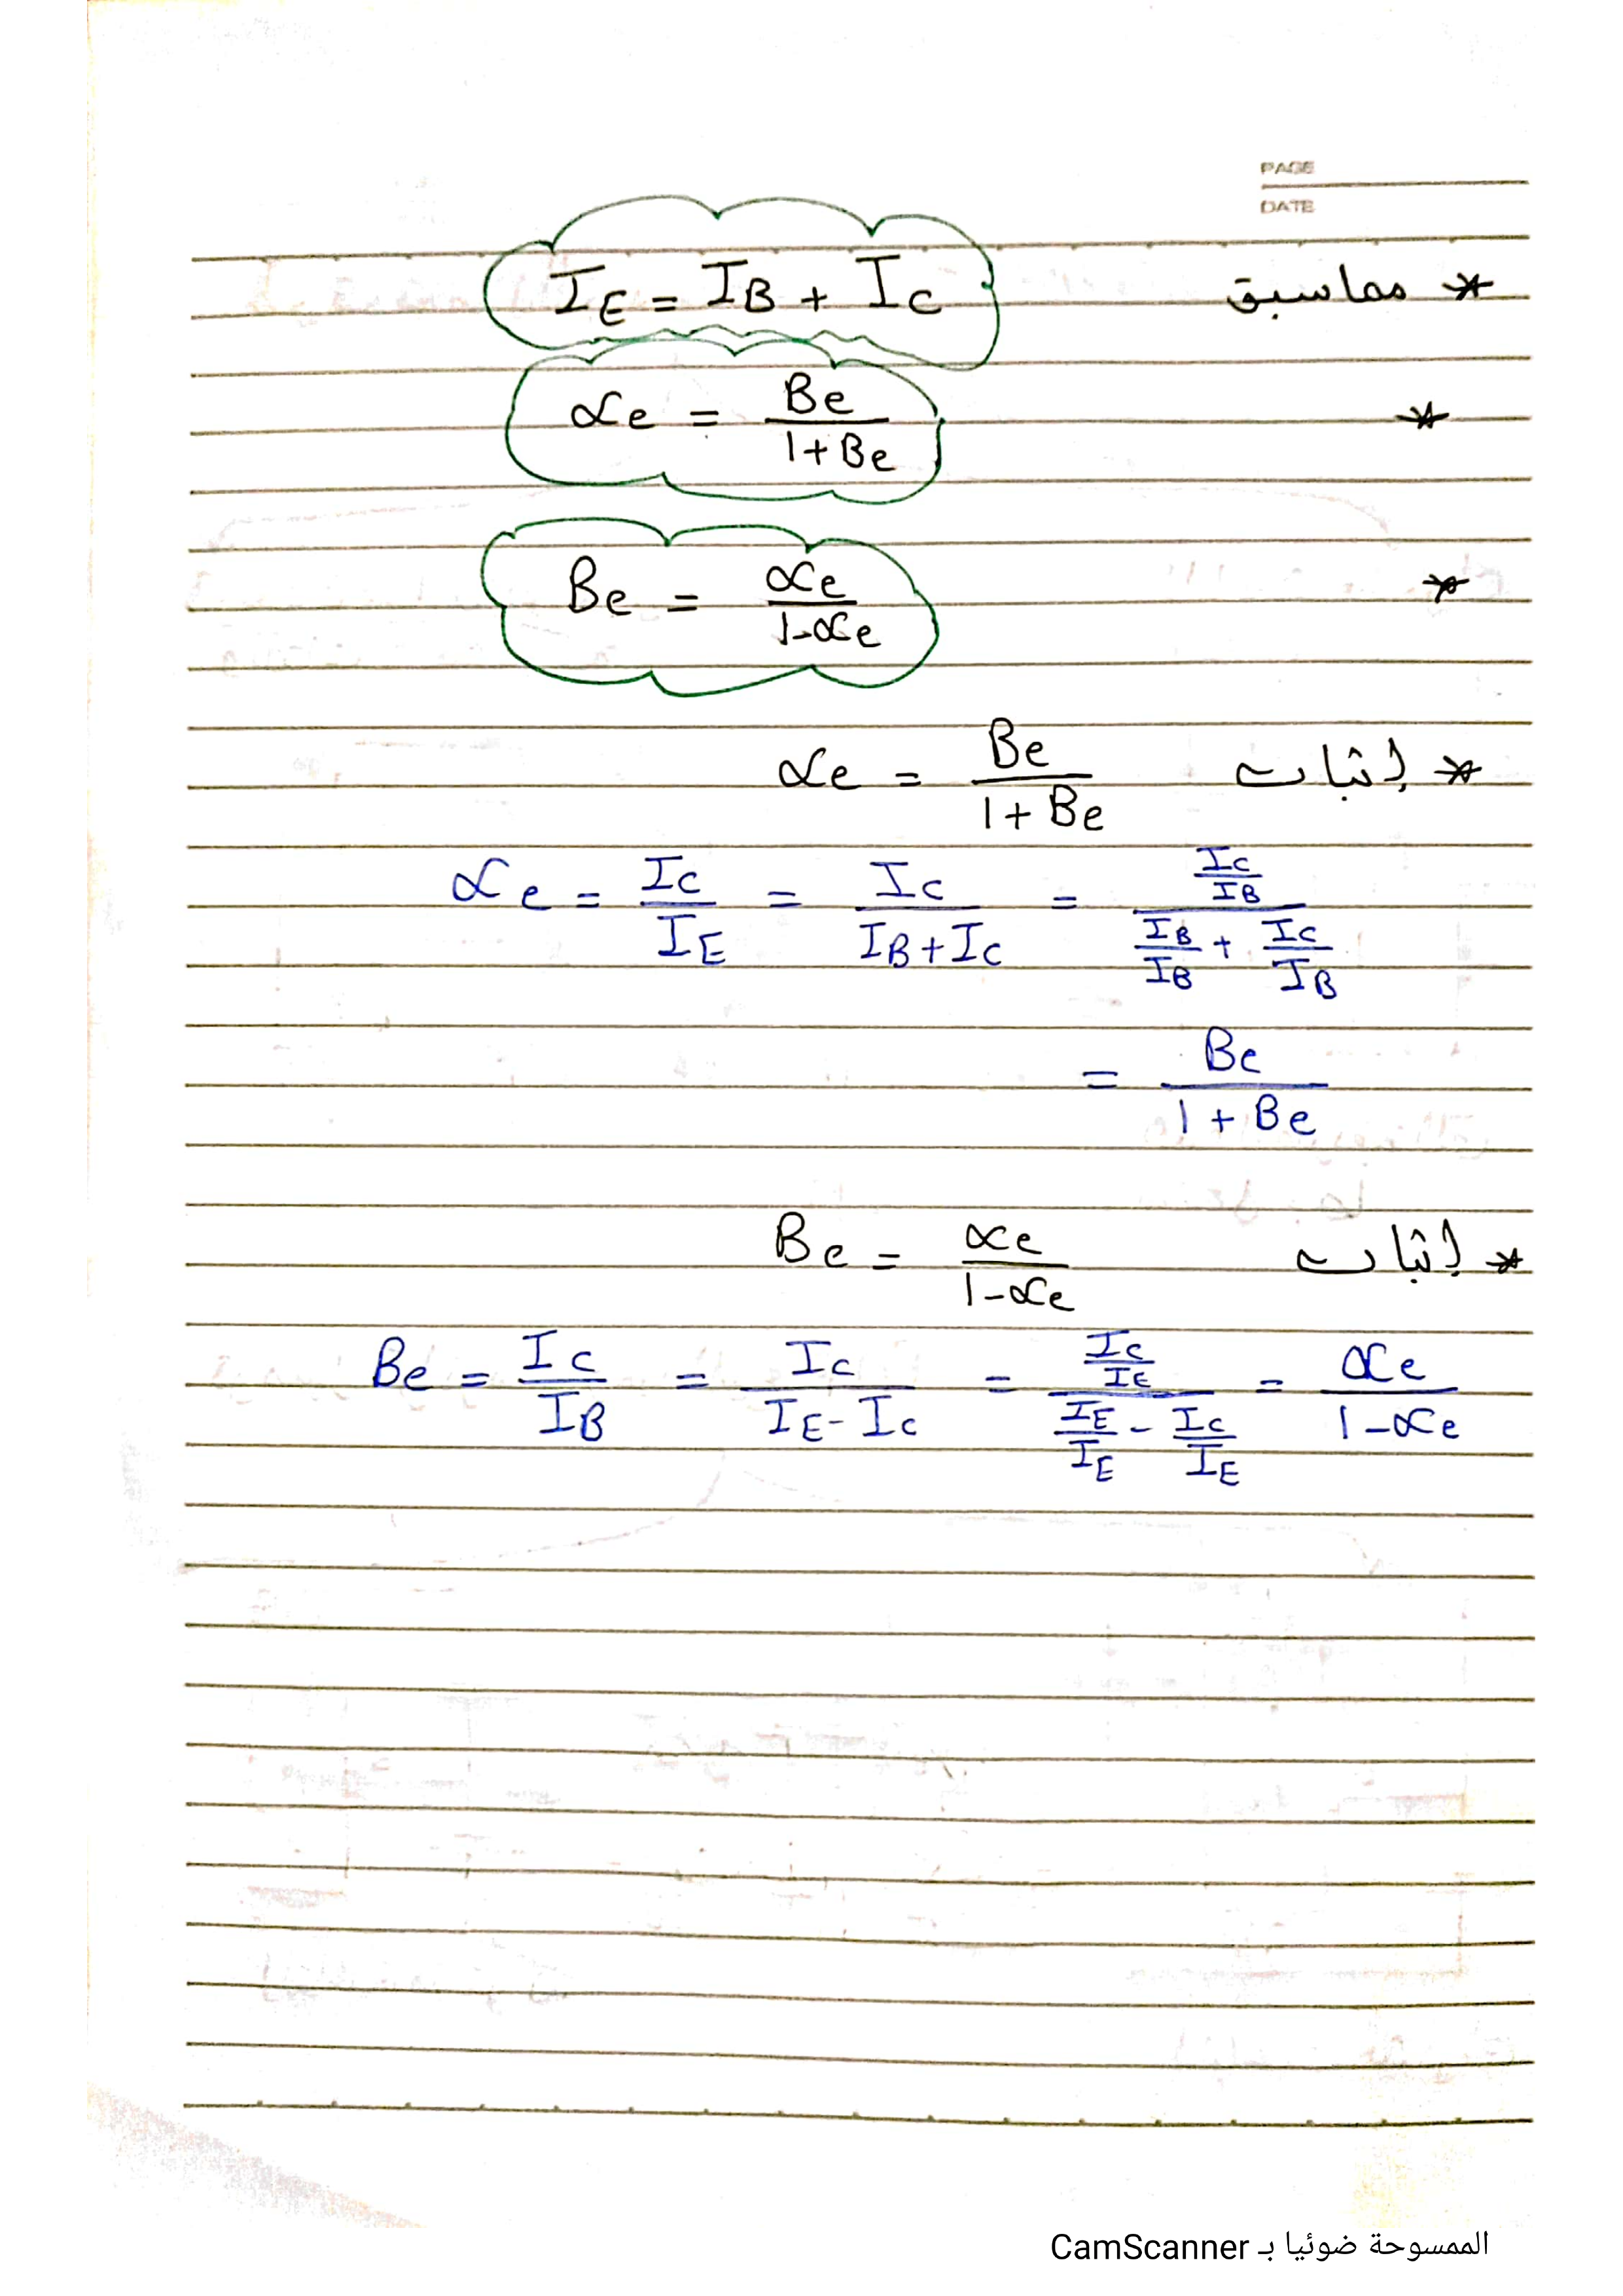 PAGE
DATE
* مماسبق I_E = I_B + I_C
* αe = Be / (1 + Be)
* Be = αe / (1 - αe)
* إثبات αe = Be / (1 + Be)
αe = I_C / I_E = I_C / (I_B + I_C) = (I_C / I_B) / (I_B / I_B + I_C / I_B)
= Be / (1 + Be)
* إثبات Be = αe / (1 - αe)
Be = I_C / I_B = I_C / (I_E - I_C) = (I_C / I_E) / (I_E / I_E - I_C / I_E) = αe / (1 - αe)
الممسوحة ضوئيا بـ CamScanner